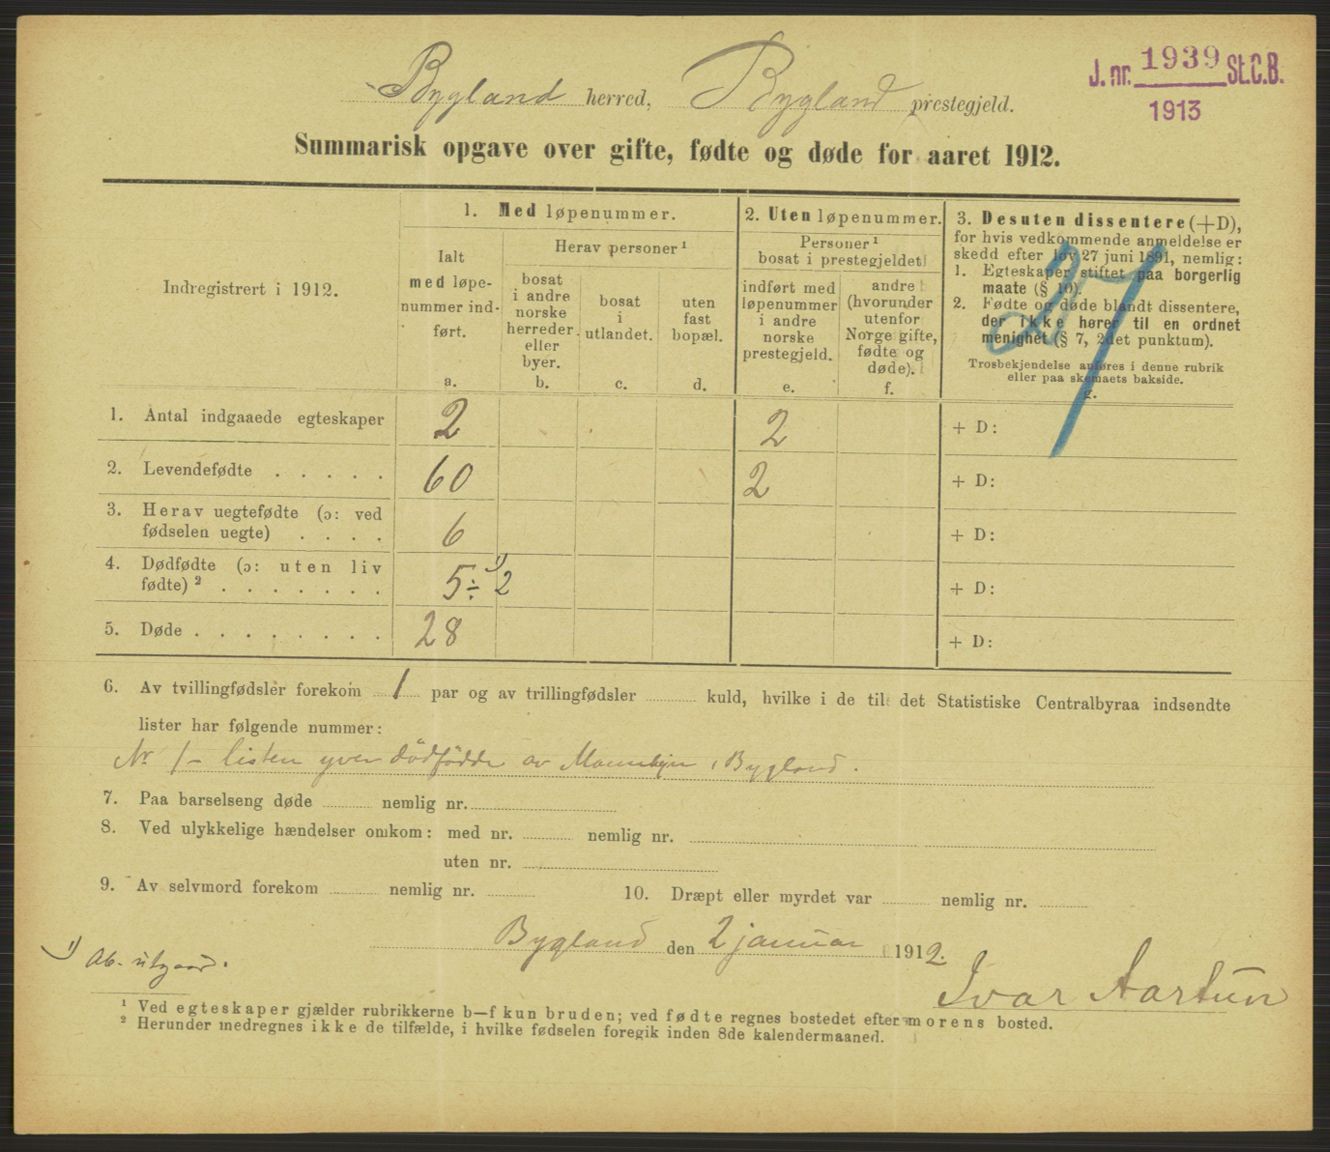 J. nr. 1939 St.C.B.
1913
Bygland herred, Bygland prestegjeld.
Summarisk opgave over gifte, fødte og døde for aaret 1912.
Indregistrert i 1912.
1. Med løpenummer.
Ialt
med løpe-
nummer ind-
ført.
a.
Herav personer¹
bosat
i andre
norske
herreder
eller
byer.
b.
bosat
i
utlandet.
c.
uten
fast
bopæl.
d.
2. Uten løpenummer.
Personer¹
bosat i prestegjeldet
indført med
løpenummer
i andre
norske
prestegjeld.
e.
andre
(hvorunder
utenfor
Norge gifte,
fødte og
døde).
f.
3. Desuten dissentere (+D),
for hvis vedkommende anmeldelse er
skedd efter lov 27 juni 1891, nemlig:
1. Egteskaper stiftet paa borgerlig
maate (§ 10).
2. Fødte og døde blandt dissentere,
der ikke hører til en ordnet
menighet (§ 7, 2det punktum).
Trosbekjendelse anføres i denne rubrik
eller paa skemaets bakside.
g.
27
1. Antal indgaaede egteskaper 2 2 + D:
2. Levendefødte . . . . . 60 2 + D:
3. Herav uegtefødte (ɔ: ved
fødselen uegte) . . . . 6 + D:
4. Dødfødte (ɔ: uten liv
fødte)² . . . . . . . 5 ÷ 2 ¹) + D:
5. Døde . . . . . . . . 28 + D:
6. Av tvillingfødsler forekom 1 par og av trillingfødsler kuld, hvilke i de til det Statistiske Centralbyraa indsendte
lister har følgende nummer:
Nr 1 – listen yver dödfödde av Mannkjyn i Bygland.
7. Paa barselseng døde nemlig nr.
8. Ved ulykkelige hændelser omkom: med nr. nemlig nr.
uten nr.
9. Av selvmord forekom nemlig nr. 10. Dræpt eller myrdet var nemlig nr.
Bygland den 2 januar 1912.
¹) Ab. utgaar.
Ivar Aartun
¹ Ved egteskaper gjælder rubrikkerne b—f kun bruden; ved fødte regnes bostedet efter morens bosted.
² Herunder medregnes ikke de tilfælde, i hvilke fødselen foregik inden 8de kalendermaaned.